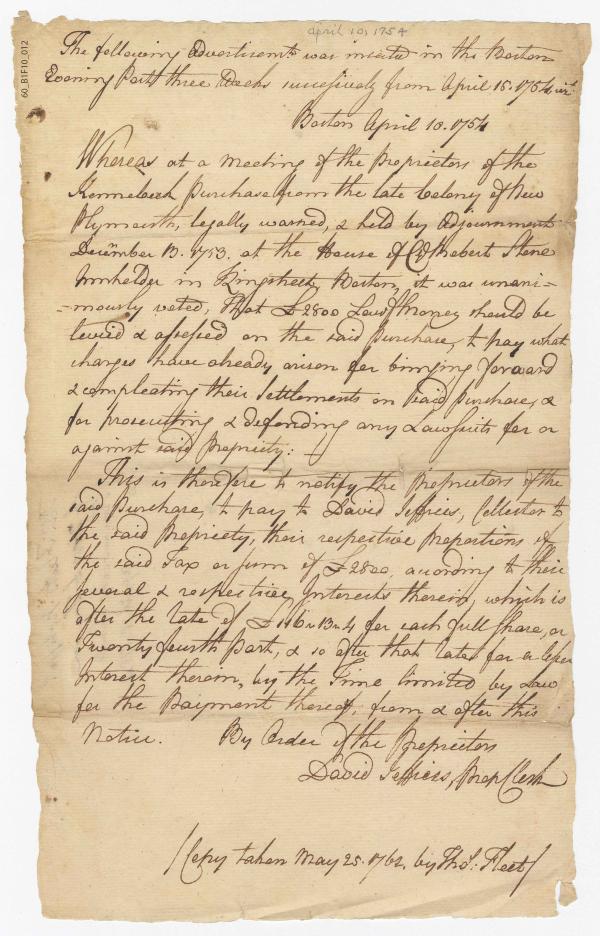 60_B1F10_012
April 10, 1754
The following Advertisemts. was inserted in the Boston
Evening Post three Weeks successively from April 15. 1754. vizt.
Boston April 10. 1754
Whereas at a meeting of the Proprietors of the
Kennebeck Purchase from the late Colony of New
Plymouth, legally warned, & held by Adjournment
December 13. 1753. at the House of Robert Stone
Innholder in Kingstreet, Boston, it was unani=
=mously voted, That £2800 Lawf. Money should be
levied & assessed on the said Purchase, to pay what
charges have already arisen for bringing forward
& compleating their Settlements on said Purchase, &
for prosecuting & defending any Lawsuits for or
against said Propriety: —
This is therefore to notify the Proprietors of the
said Purchase, to pay to David Jeffries, Collector to
the said Propriety, their respective Proportions of
the said Tax or sum of £2800, according to their
several & respective Interests therein, which is
after the Rate of £116 " 13 " 4 for each full Share, or
Twenty fourth Part, & so after that Rate for a lesser
Interest therein, by the Time limited by Law
for the Paiyment thereof, from & after this
Notice. By Order of the Proprietors
David Jeffries, Prop Clerk
(Copy taken May 25. 1762. by Thos: Fleet)